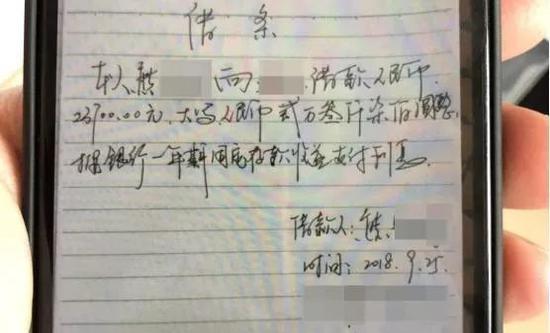 借条
本人熊 向 借款人民币
23700.00元,大写人民币贰万叁仟柒佰圆整,
按银行一年期固定存款收益支付利息
借款人:熊
时间:2018.9.25